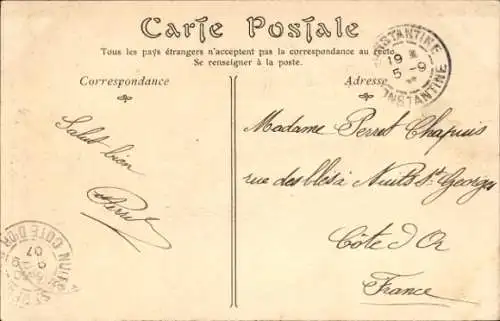 Carte Postale
Tous les pays étrangers n'acceptent pas la correspondance au recto
Se renseigner à la poste.
Correspondance
Adresse
CONSTANTINE
19
5 -9
CONSTANTINE
Salut bien
Perret
Madame Perret Chapuis
rue des blés à Nuits St Georges
Côte d'Or
France
CÔTE D'OR
07